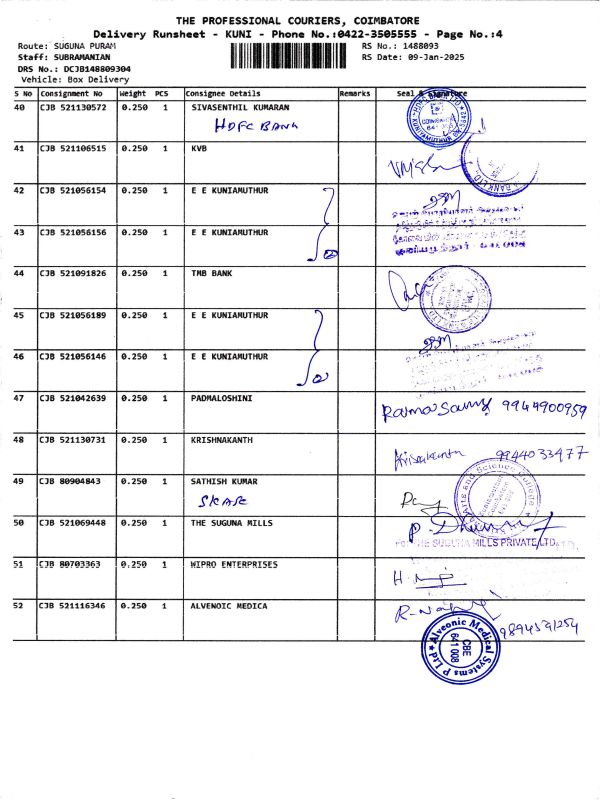 THE PROFESSIONAL COURIERS, COIMBATORE
Delivery Runsheet - KUNI - Phone No.:0422-3505555 - Page No.:4
Route: SUGUNA PURAM
RS No.: 1488093
Staff: SUBRAMANIAN
RS Date: 09-Jan-2025
DRS No.: DCJB148809304
Vehicle: Box Delivery
S No Consignment No Weight PCS Consignee Details Remarks Seal & Signature
40 CJB 521130572 0.250 1 SIVASENTHIL KUMARAN
HDFC BANK
41 CJB 521106515 1 KVB
42 CJB 521056154 0.250 1 E E KUNIAMUTHUR
43 CJB 521056156 0.250 1 E E KUNIAMUTHUR
44 CJB 521091826 1 TMB BANK
45 CJB 521056189 0.250 1 E E KUNIAMUTHUR
46 CJB 521056146 0.250 1 E E KUNIAMUTHUR
47 CJB 521042639 0.250 1 PADMALOSHINI
9944900959
48 CJB 521130731 0.250 1 KRISHNAKANTH
9944033477
49 CJB 80904843 0.250 1 SATHISH KUMAR
SKASC
Arts and Science College
50 CJB 521069448 0.250 1 THE SUGUNA MILLS
For THE SUGUNA MILLS PRIVATE LTD.
51 CJB 80703363 0.250 1 WIPRO ENTERPRISES
52 CJB 521116346 0.250 1 ALVENOIC MEDICA
9894591254
Alveonic Medical Systems P Ltd
CBE
641 008